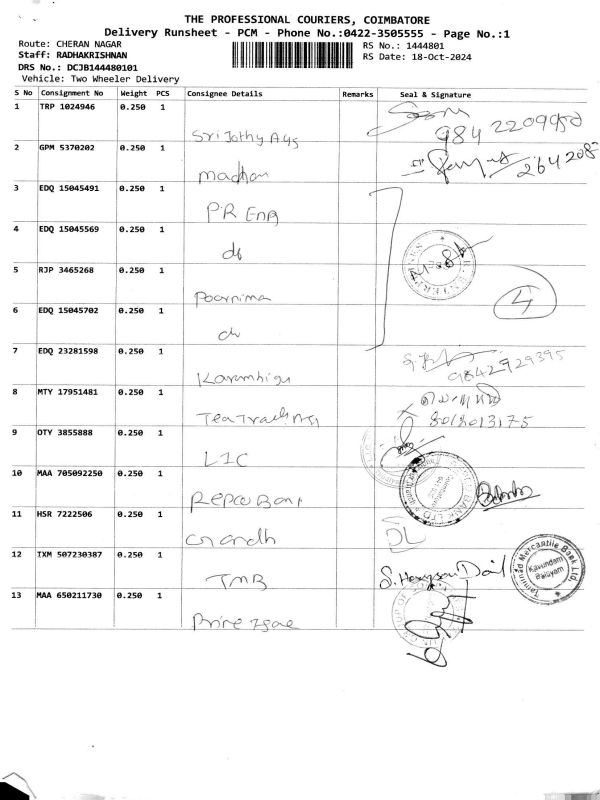 THE PROFESSIONAL COURIERS, COIMBATORE
Delivery Runsheet - PCM - Phone No.:0422-3505555 - Page No.:1
Route: CHERAN NAGAR
RS No.: 1444801
Staff: RADHAKRISHNAN
RS Date: 18-Oct-2024
DRS No.: DCJB144480101
Vehicle: Two Wheeler Delivery
S No Consignment No Weight PCS Consignee Details Remarks Seal & Signature
1 TRP 1024946 0.250 1
Sri Jothy Ays 984 2209950
2 GPM 5370202 0.250 1
madhan 264208
3 EDQ 15045491 0.250 1
P.R Eng
4 EDQ 15045569 0.250 1
do
5 RJP 3465268 0.250 1
Poornima 4
6 EDQ 15045702 0.250 1
do
7 EDQ 23281598 0.250 1
9842929395
8 MTY 17951481 0.250 1
8018013175
9 OTY 3855888 0.250 1
LIC
10 MAA 705092250 0.250 1
Repco Bank
11 HSR 7222506 0.250 1
DL
12 IXM 507230387 0.250 1
TMB
Tamilnad Mercantile Bank Ltd.
Kavundam
Palayam
13 MAA 650211730 0.250 1